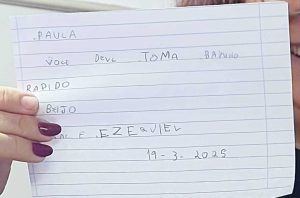 PAULA
VOCE DEVE TOMA BANHO
RAPIDO
BEIJO
E EZEQUIEL
19-3-2025